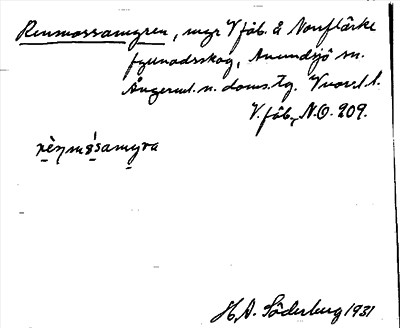 Renmossamyren, myr V fäb. å Norrflärke
fyenadsskog, Anundsjö sn.
Ångerml. n. doms. tg. Vvarsl.l.
V. fäb, N.O. 209.
rèŋmśsamyra
H. A. Söderberg 1931